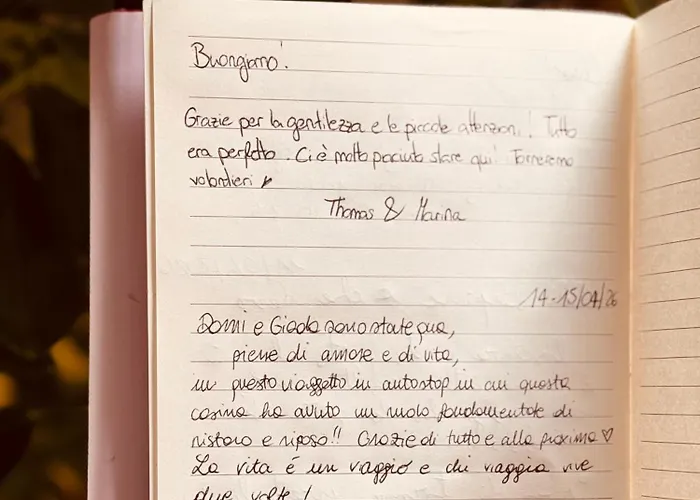 Buongiorno!
Grazie per la gentilezza e le piccole attenzioni! Tutto
era perfetto. Ci è molto piaciuto stare qui! Torneremo
volontieri
Thomas & Marina
14-15/04/26
Domi e Giada sono state qua,
piene di amore e di vita,
in questo viaggetto in autostop in cui questa
casina ha avuto un ruolo fondamentale di
ristoro e riposo!! Grazie di tutto e alla prossima ♡
La vita è un viaggio e chi viaggia vive
due volte!